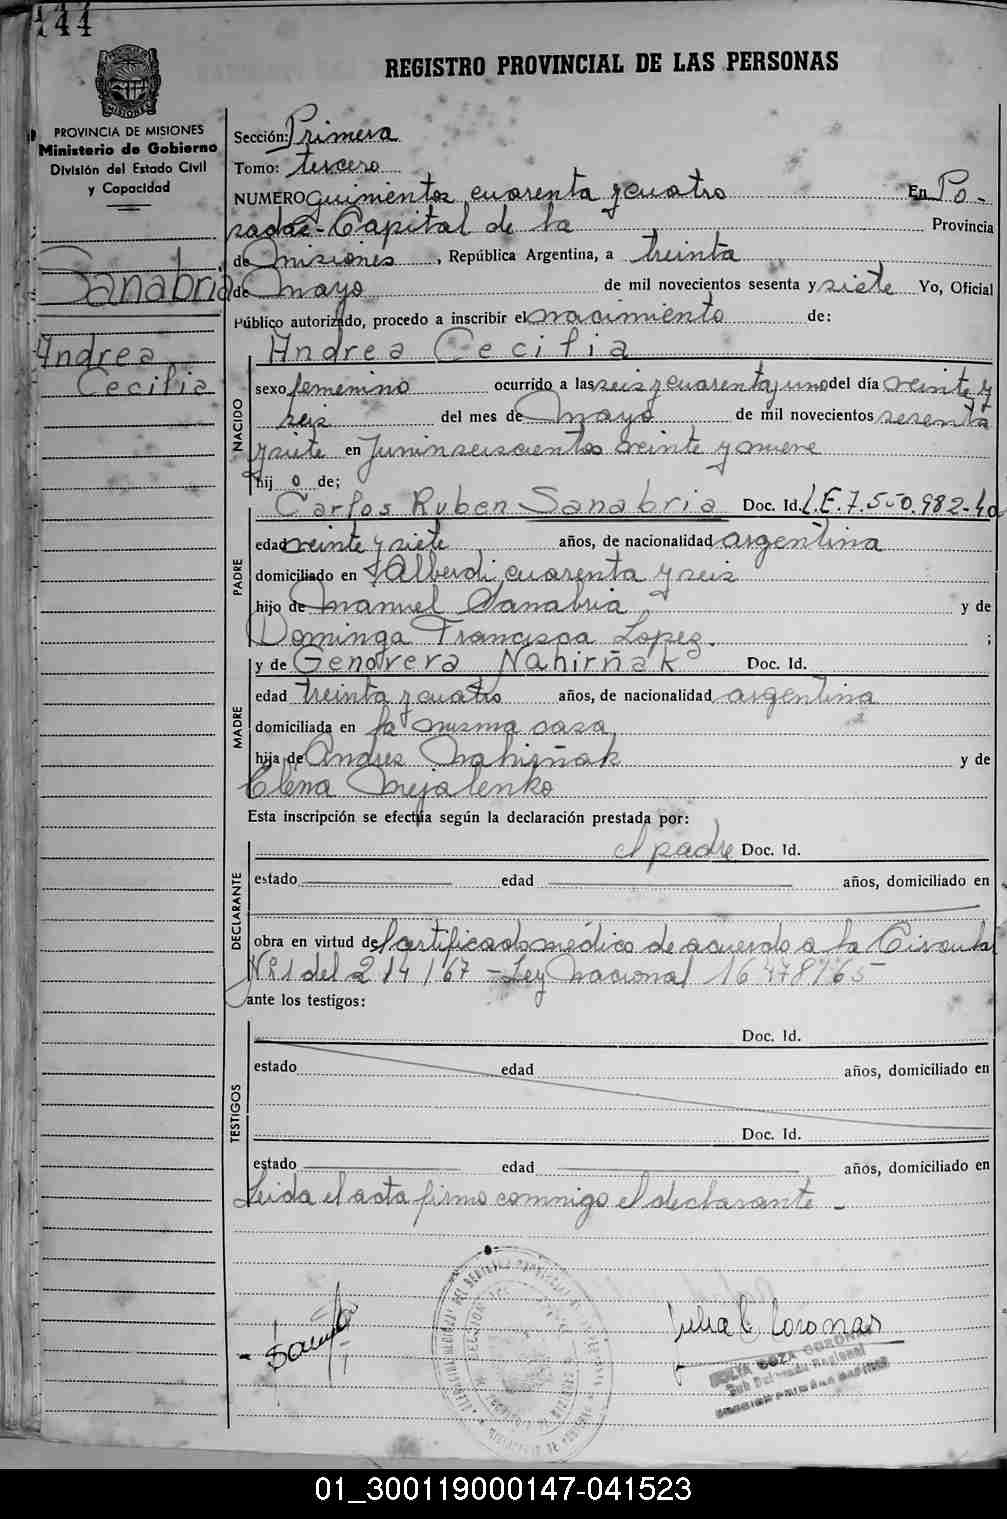 144
REGISTRO PROVINCIAL DE LAS PERSONAS
PROVINCIA DE MISIONES
Ministerio de Gobierno
División del Estado Civil
y Capacidad
Sanabria
Andrea
Cecilia
Sección: Primera
Tomo: tercero
NUMERO quinientos cuarenta y cuatro En Po-
sadas - Capital de la Provincia
de Misiones, República Argentina, a treinta
de mayo de mil novecientos sesenta y siete Yo, Oficial
Público autorizado, procedo a inscribir el nacimiento de:
NACIDO
Andrea Cecilia
sexo femenino ocurrido a las seis y cuarenta y uno del día veinte y
seis del mes de Mayo de mil novecientos sesenta
y siete en Junin seiscientos veinte y nueve
hij o de;
PADRE
Carlos Ruben Sanabria Doc. Id. L.E. 7.550.982-
edad veinte y siete años, de nacionalidad argentina
domiciliado en Alberdi cuarenta y seis
hijo de Manuel Sanabria y de
Dominga Francisca Lopez. ;
y de Genovera Nahirñak Doc. Id.
MADRE
edad treinta y cuatro años, de nacionalidad argentina
domiciliada en la misma casa
hija de Andres Nahirñak y de
Elena Mejalenko
Esta inscripción se efectúa según la declaración prestada por:
DECLARANTE
el padre Doc. Id.
estado edad años, domiciliado en
obra en virtud de Certificado médico de acuerdo a la Circular
Nº 1 del 2/4/67 - Ley Nacional 16478/65
ante los testigos:
TESTIGOS
Doc. Id.
estado edad años, domiciliado en
Doc. Id.
estado edad años, domiciliado en
Leida el acta firma conmigo el declarante -
Julia C Coronas
Sub Delegado Regional
01_300119000147-041523